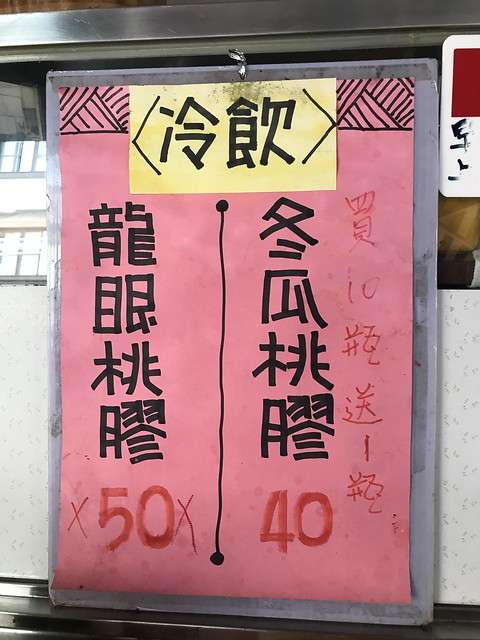 〈冷飲〉
買10瓶送1瓶
冬瓜桃膠
40
龍眼桃膠
X50X